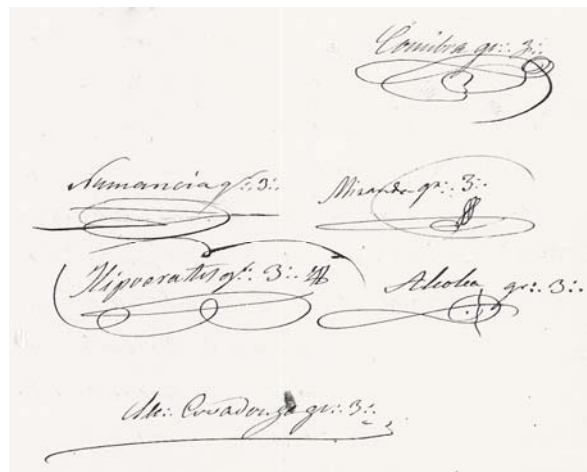 Coimbra gr∴ 3∴
Numancia gr∴ 3∴
Miranda gr∴ 3∴
Hipocrates gr∴ 3∴
Alcolea gr∴ 3∴
Covadonga gr∴ 3∴